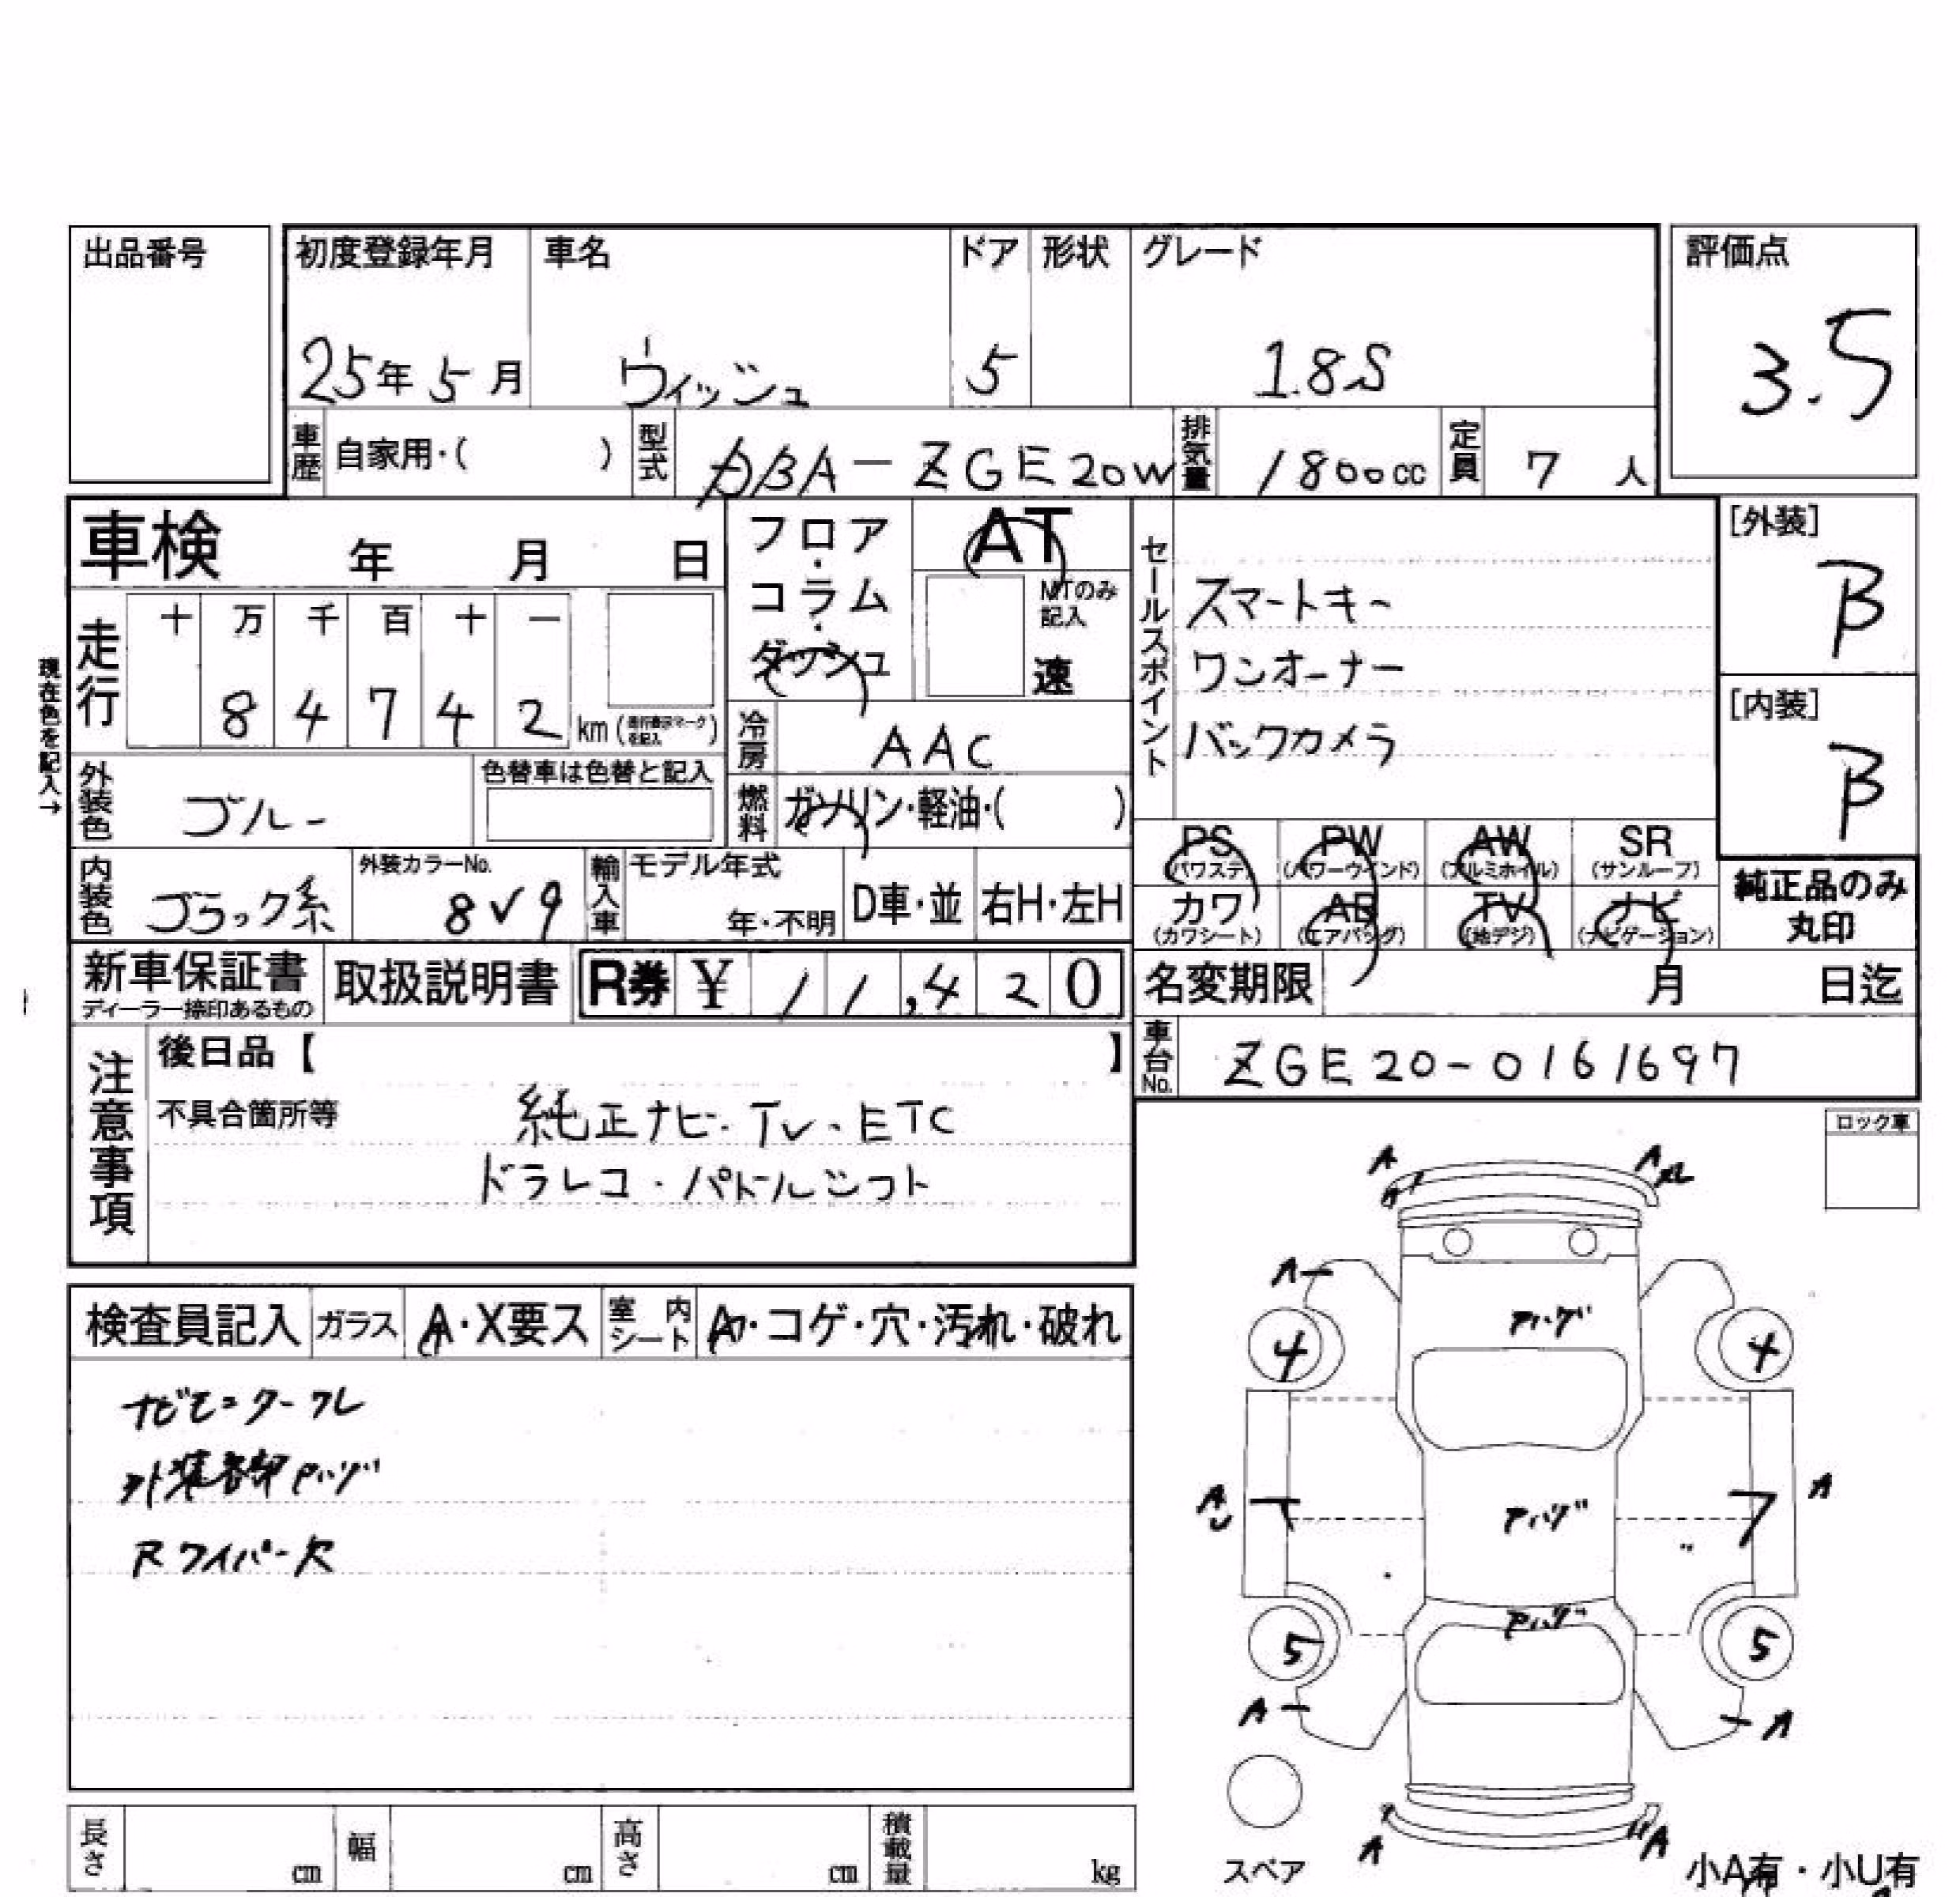 出品番号
初度登録年月 車名 ドア 形状 グレード
25年5月 ウィッシュ 5 18S
評価点
3.5
車歴 自家用・( ) 型式 DBA-ZGE20W 排気量 1800cc 定員 7人
車検 年 月 日
フロア・コラム・ダッシュ
AT
MTのみ記入
速
セールスポイント
スマートキー
ワンオーナー
バックカメラ
[外装]
B
[内装]
B
現在色を記入→
走行 十 万 千 百 十 一
84742 km(走行表示マークを記入)
冷房 AAC
外装色 ブルー 色替車は色替と記入
燃料 ガソリン・軽油・( )
PS (パワステ) PW (パワーウインド) AW (アルミホイル) SR (サンルーフ)
カワ (カワシート) AB (エアバッグ) TV (地デジ) ナビ (ナビゲーション)
純正品のみ丸印
内装色 ブラック系 外装カラーNo. 8V9 輸入車 モデル年式 年・不明 D車・並 右H・左H
新車保証書 ディーラー捺印あるもの 取扱説明書 R券 ¥ 11,420
名変期限 月 日迄
車台No. ZGE20-0161697
注意事項
後日品【 】
不具合箇所等 純正ナビ・TV・ETC
ドラレコ・パドルシフト
ロック車
検査員記入 ガラス A・X要ス 室内シート ・コゲ・穴・汚れ・破れ
ナビモニターワレ
外装各部アハゲ
Rワイパー欠
A A
A
アハゲ
4 4
A アハゲ A
アハゲ
5 5
A A
A A
スペア
小A有・小U有
長さ cm 幅 cm 高さ cm 積載量 kg